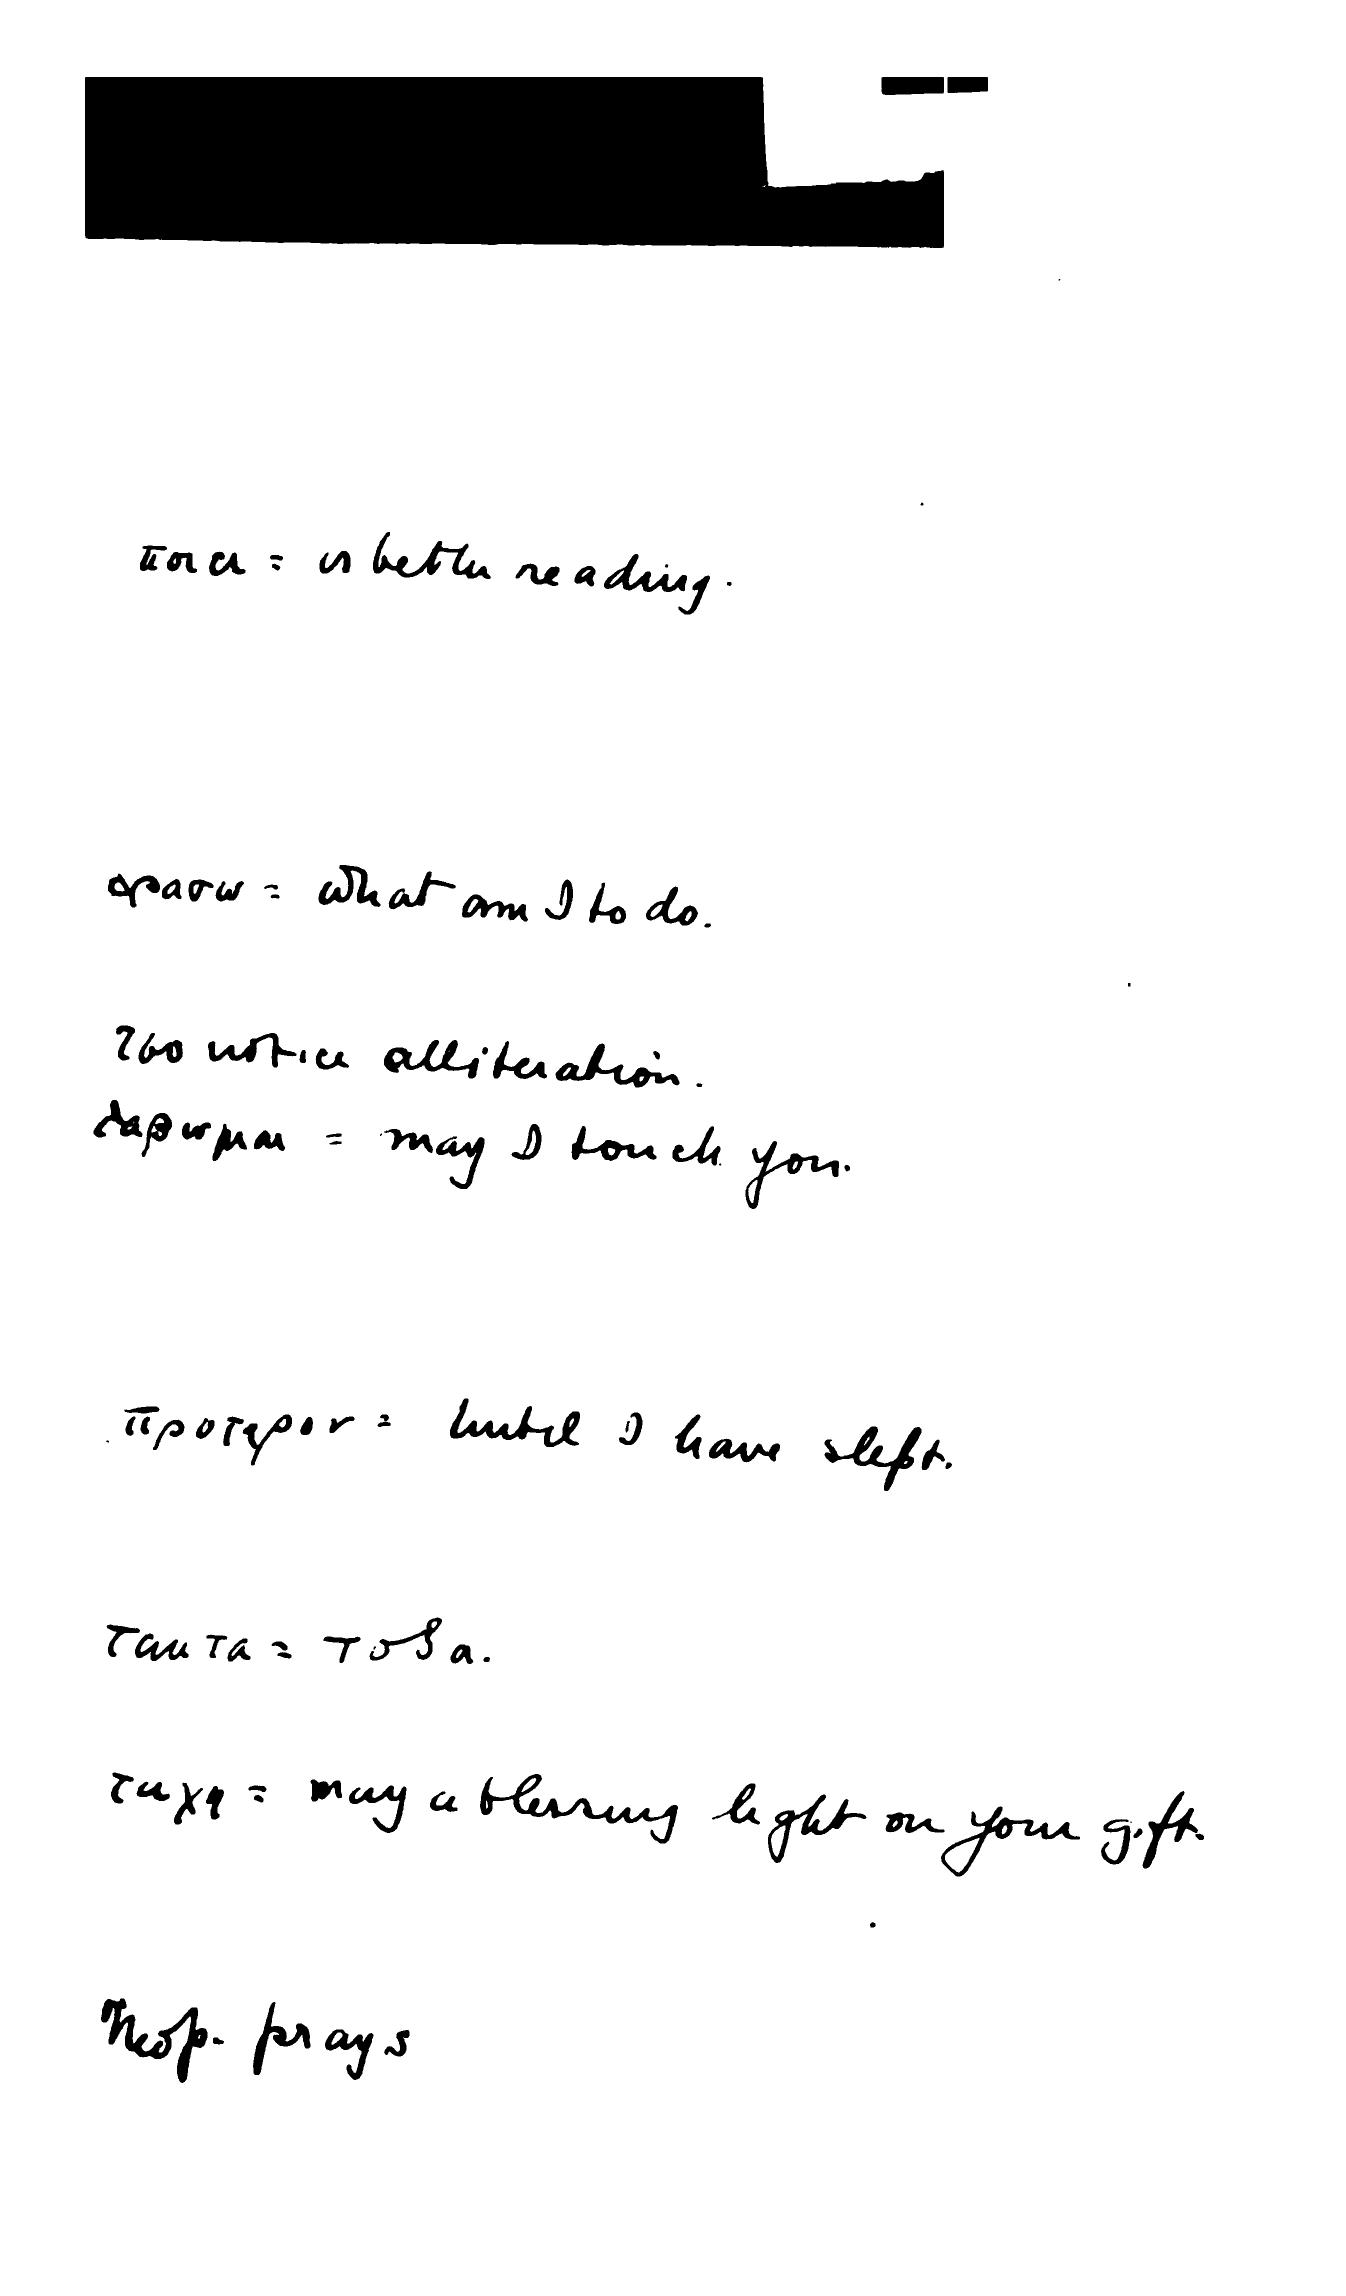 ποιει = is better reading.
δρασω = what am I to do.
760 notice alliteration.
λαβωμαι = may I touch you.
προτερον = until I have slept.
ταυτα = τοξα.
τυχη = may a blessing light on your gift.
Neop. prays